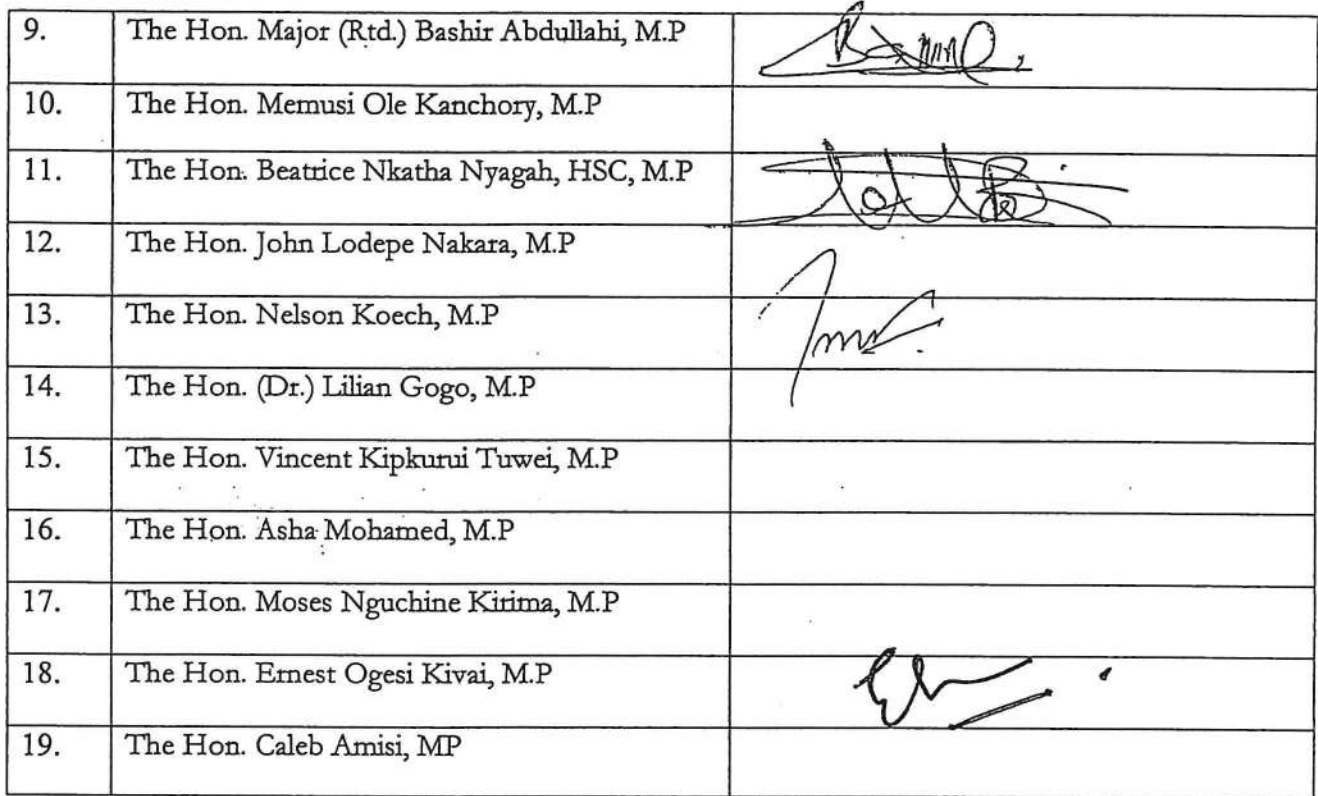 9. The Hon. Major (Rtd.) Bashir Abdullahi, M.P
10. The Hon. Memusi Ole Kanchory, M.P
11. The Hon. Beatrice Nkatha Nyagah, HSC, M.P
12. The Hon. John Lodepe Nakara, M.P
13. The Hon. Nelson Koech, M.P
14. The Hon. (Dr.) Lilian Gogo, M.P
15. The Hon. Vincent Kipkurui Tuwei, M.P
16. The Hon. Asha Mohamed, M.P
17. The Hon. Moses Nguchine Kirima, M.P
18. The Hon. Ernest Ogesi Kivai, M.P
19. The Hon. Caleb Amisi, MP